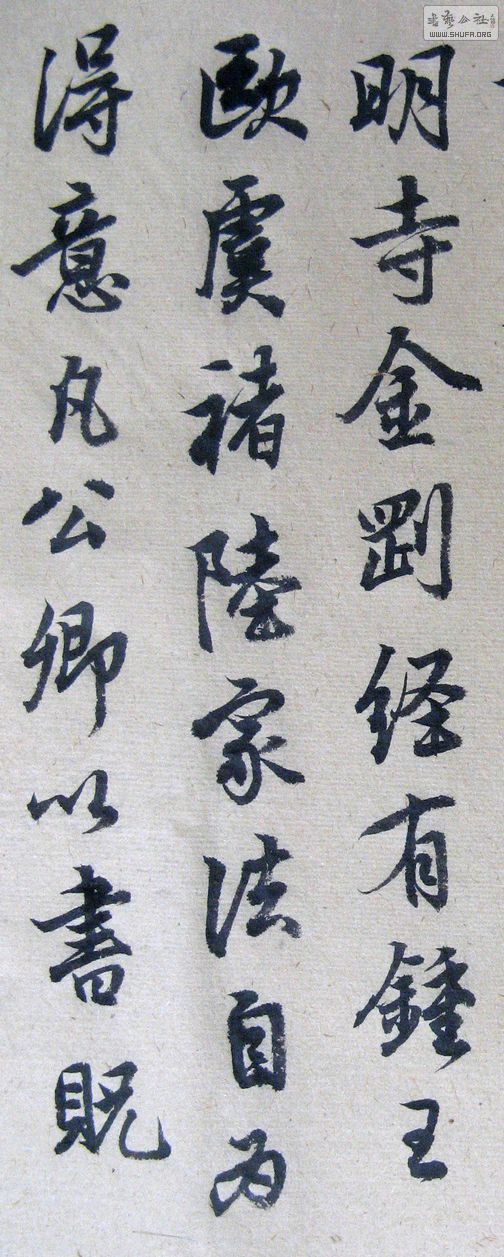 明寺金剛经有鍾王
歐虞禇陸家法自为
得意凡公卿以書贶
書藝公社
WWW.SHUFA.ORG